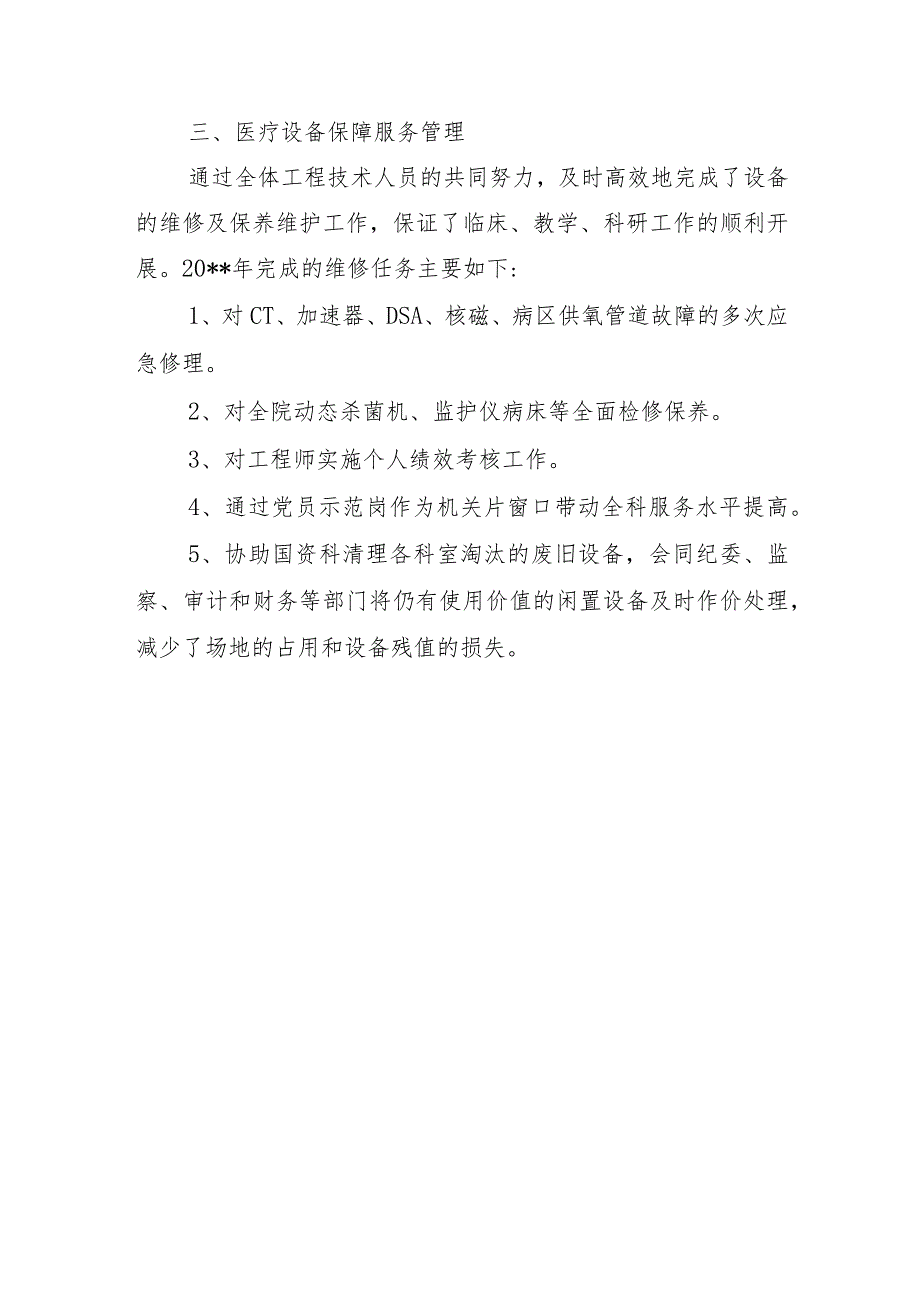 三、医疗设备保障服务管理
通过全体工程技术人员的共同努力，及时高效地完成了设备
的维修及保养维护工作，保证了临床、教学、科研工作的顺利开
展。20**年完成的维修任务主要如下:
1、对CT、加速器、DSA、核磁、病区供氧管道故障的多次应
急修理。
2、对全院动态杀菌机、监护仪病床等全面检修保养。
3、对工程师实施个人绩效考核工作。
4、通过党员示范岗作为机关片窗口带动全科服务水平提高。
5、协助国资科清理各科室淘汰的废旧设备，会同纪委、监
察、审计和财务等部门将仍有使用价值的闲置设备及时作价处理，
减少了场地的占用和设备残值的损失。